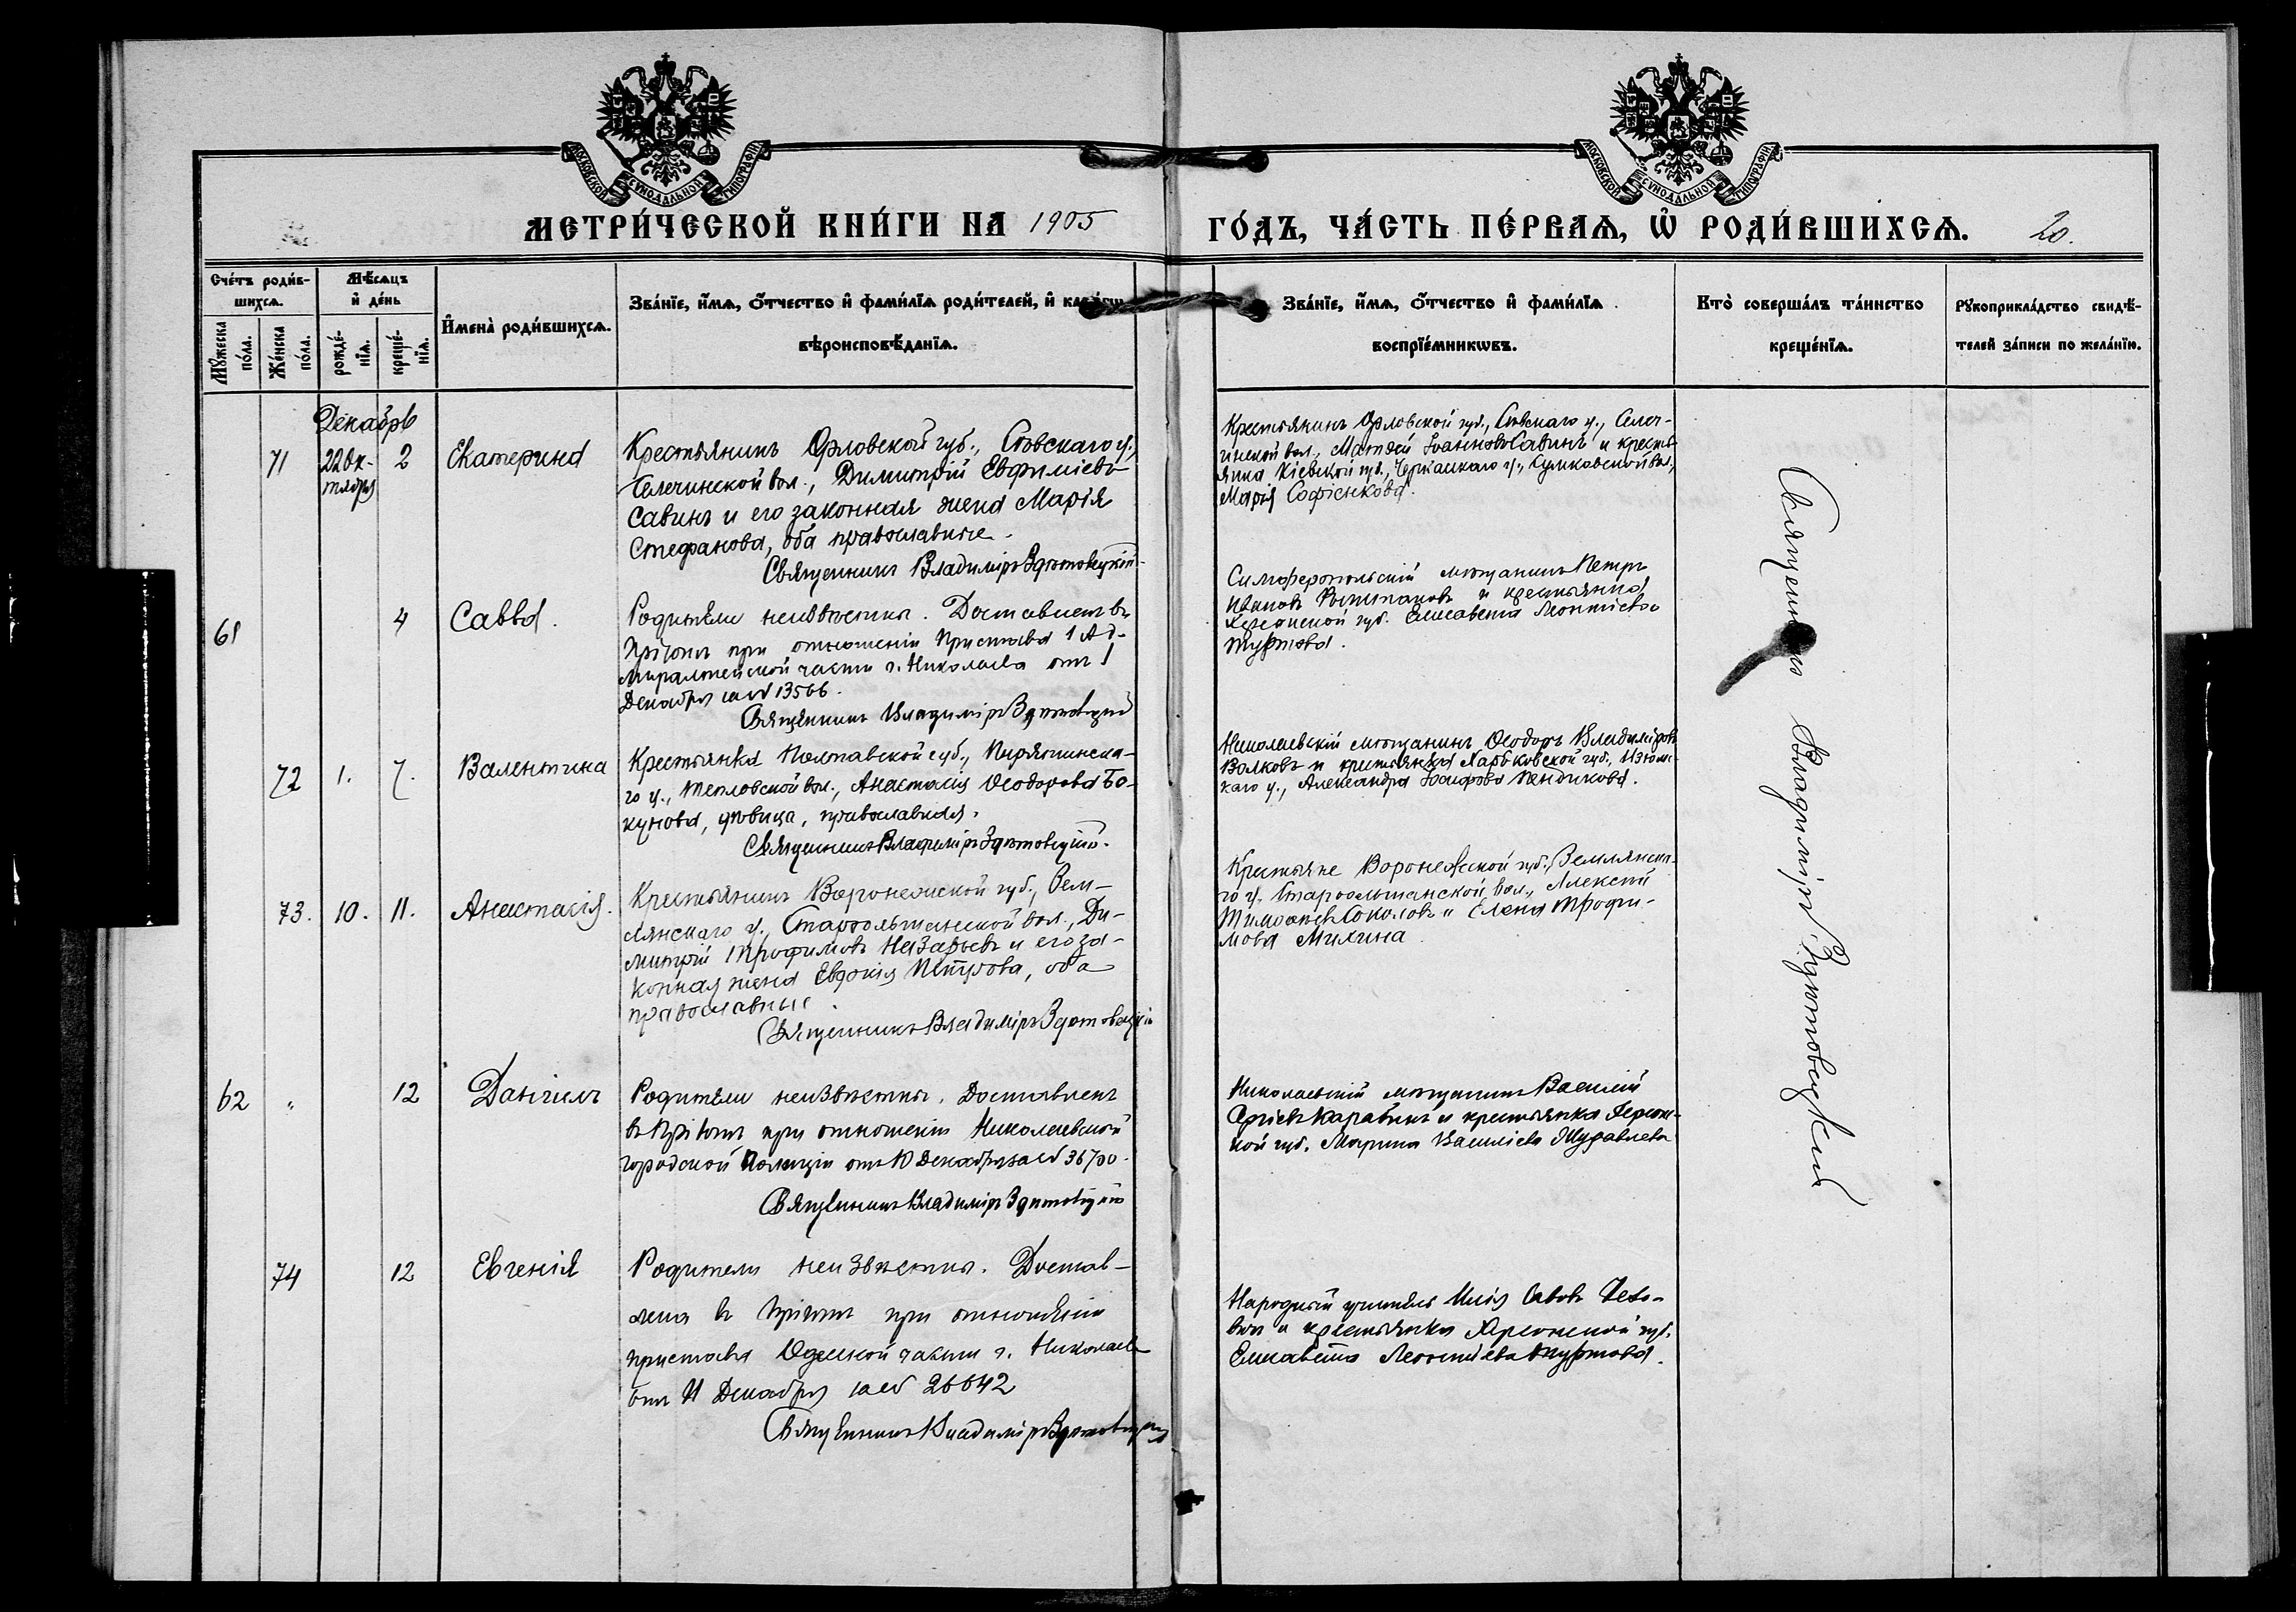 МОСКОВСКОЙ СѴНОДАЛЬНОЙ ТИПОГРАФІИ
МОСКОВСКОЙ СѴНОДАЛЬНОЙ ТИПОГРАФІИ
МЕТРИ́ЧЕСКОЙ КНИ́ГИ НА 1905
ГО́ДЪ, ЧА́СТЬ ПЕ́РВАѦ, Ѡ҆ РОДИ́ВШИХСѦ. 20.
Сче́тъ роди́в-
шихсѧ.
Мѣ́сѧцъ
и҆ де́нь
Мꙋ́жеска по́ла.
Же́нска по́ла.
рожде́-
нїѧ.
креще́-
нїѧ.
И҆мена̀ роди́вшихсѧ.
Зва́нїе, и҆́мѧ, ѻ҆́тчество и҆ фами́лїѧ роди́телей, и҆
вѣроисповѣ́данїѧ.
Зва́нїе, и҆́мѧ, ѻ҆́тчество и҆ фами́лїѧ
воспрїе́мникѡвъ.
Кто̀ соверша́лъ та́инство
креще́нїѧ.
Рꙋкоприкла́дство свидѣ́-
телей за́писи по жела́нїю.
Декабрь
71 22 Ок-
тября 2 Екатерина
Крестьянинъ Орловской губ., Сѣвскаго у.,
Селечинской вол., Димитрій Евфиміевъ
Савинъ и его законная жена Марія
Стефанова, оба православные.
Священникъ Владиміръ Здѣтовецкій
Крестьянинъ Орловской губ., Сѣвскаго у., Селеч-
инской вол., Матѳей Іоанновъ Савинъ и кресть-
янка Кіевской губ., Черкасскаго у.,
Марія Софіенкова.
61 4 Савва.
Родители неизвѣстны. Доставленъ въ
Пріютъ при отношеніи Пристава 1 Ад-
миралтейской части г. Николаева отъ 1
Декабря за № 13566.
Священникъ Владиміръ Здѣтовецкій
Симферопольскій мѣщанинъ Петръ
Ивановъ и крестьянка
Херсонской губ. Елисавета Леонтіева
72 1. 7. Валентина
Крестьянка Полтавской губ., Пирятинска-
го у., Тепловской вол., Анастасія Ѳеодорова Бо-
кунова, дѣвица, православная.
Священникъ Владиміръ Здѣтовецкій.
Николаевскій мѣщанинъ Ѳеодоръ Владиміровъ
Волковъ и крестьянка Харьковской губ., Изюмс-
каго у., Александра Іосифова Пендикова.
73. 10. 11. Анастасія.
Крестьянинъ Воронежской губ., Зем-
лянскаго у., Староольшанской вол., Ди-
митрій Трофимовъ Назарьевъ и его за-
конная жена Евдокія Петрова, оба
православные.
Священникъ Владиміръ Здѣтовецкій
Крестьяне Воронежской губ., Землянска-
го у. Староольшанской вол., Алексѣй
Тимоѳеевъ Соколовъ и Елена Трофи-
мова Михина
62 " 12 Даніилъ
Родители неизвѣстны. Доставленъ
въ Пріютъ при отношеніи Николаевской
городской Полиціи отъ 10 Декабря за № 36700.
Священникъ Владиміръ Здѣтовецкій
Николаевскій мѣщанинъ Василій
Сергіевъ и крестьянка Херсонс-
кой губ. Марина Василіева Журавлева
74 12 Евгенія
Родители неизвѣстны. Достав-
лена въ Пріютъ при отношеніи
пристава Одесской части г. Николаева
отъ 11 Декабря за № 26642
Священникъ Владиміръ Здѣтовецкій
Народный учитель Илія Савовъ
и крестьянка Херсонской губ.
Елисавета Леонтіева
Священникъ Владиміръ Здѣтовецкій